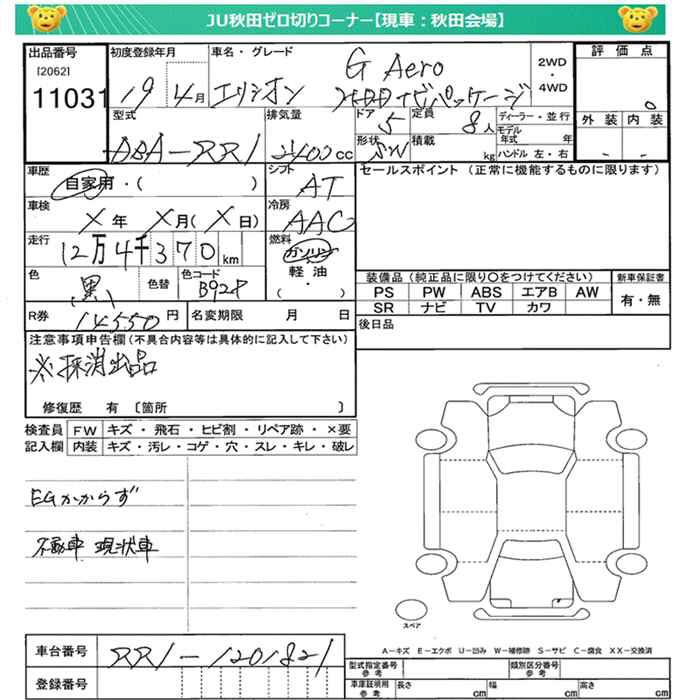 JU秋田ゼロ切りコーナー【現車：秋田会場】
出品番号 [2062] 11031
初度登録年月 19 4月
車名・グレード エリシオン G Aero HDDナビパッケージ
2WD・4WD
評価点 0
外装 - 内装 -
型式 DBA-RR1
排気量 2400cc
ドア 5
定員 8人
形状 SW
積載 kg
ディーラー・並行
モデル年式 年
ハンドル 左・右
車歴 自家用・( )
シフト AT
セールスポイント（正常に機能するものに限ります）
車検 X年 X月(X日)
冷房 AAC
走行 12万4千370km
燃料 ガソリン 軽油 ( ・ )
色 黒 色替
色コード B92P
装備品（純正品に限り○をつけてください）
新車保証書
PS PW ABS エアB AW
有・無
SR ナビ TV カワ
R券 14550円
名変期限 月 日
後日品
注意事項申告欄（不具合内容等は具体的に記入して下さい）
※抹消出品
修復歴 有 〔箇所 〕
検査員記入欄
FW キズ・飛石・ヒビ割・リペア跡・×要
内装 キズ・汚レ・コゲ・穴・スレ・キレ・破レ
EGかからず
不動車 現状車
スペア
A-キズ E-エクボ U-凹み W-補修跡 S-サビ C-腐食 XX-交換済
車台番号 RR1-1201821
登録番号
型式指定番号 参考
類別区分番号 参考
車庫証明用 参考 長さ cm 幅 cm 高さ cm